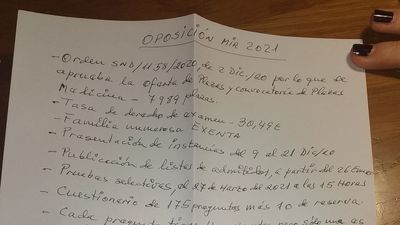 OPOSICIÓN MIR 2021
- Orden SND/1158/2020, de 2 Dic/20 por lo que se
aprueba la oferta de Plazas y convocatoria de Plazas
Medicina - 7989 plazas.
- Tasa de derecho de examen - 30,49€
- Familia numerosa EXENTA
- Presentación de instancias del 9 al 21 Dic/20
- Publicación de listas de admitidos, a partir del 26 Enero
- Pruebas selectivas, el 27 de Marzo del 2021 a las 15 Horas
- Cuestionario de 175 preguntas más 10 de reserva.
- Cada pregunta pero sólo una es